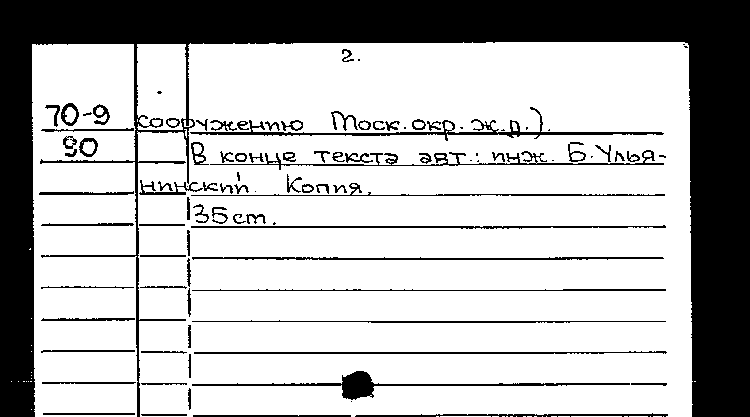 2.
70-9 сооружению Моск. окр. ж.д.).
90 В конце текста авт.: инж. Б. Улья-
нинский. Копия.
35 ст.